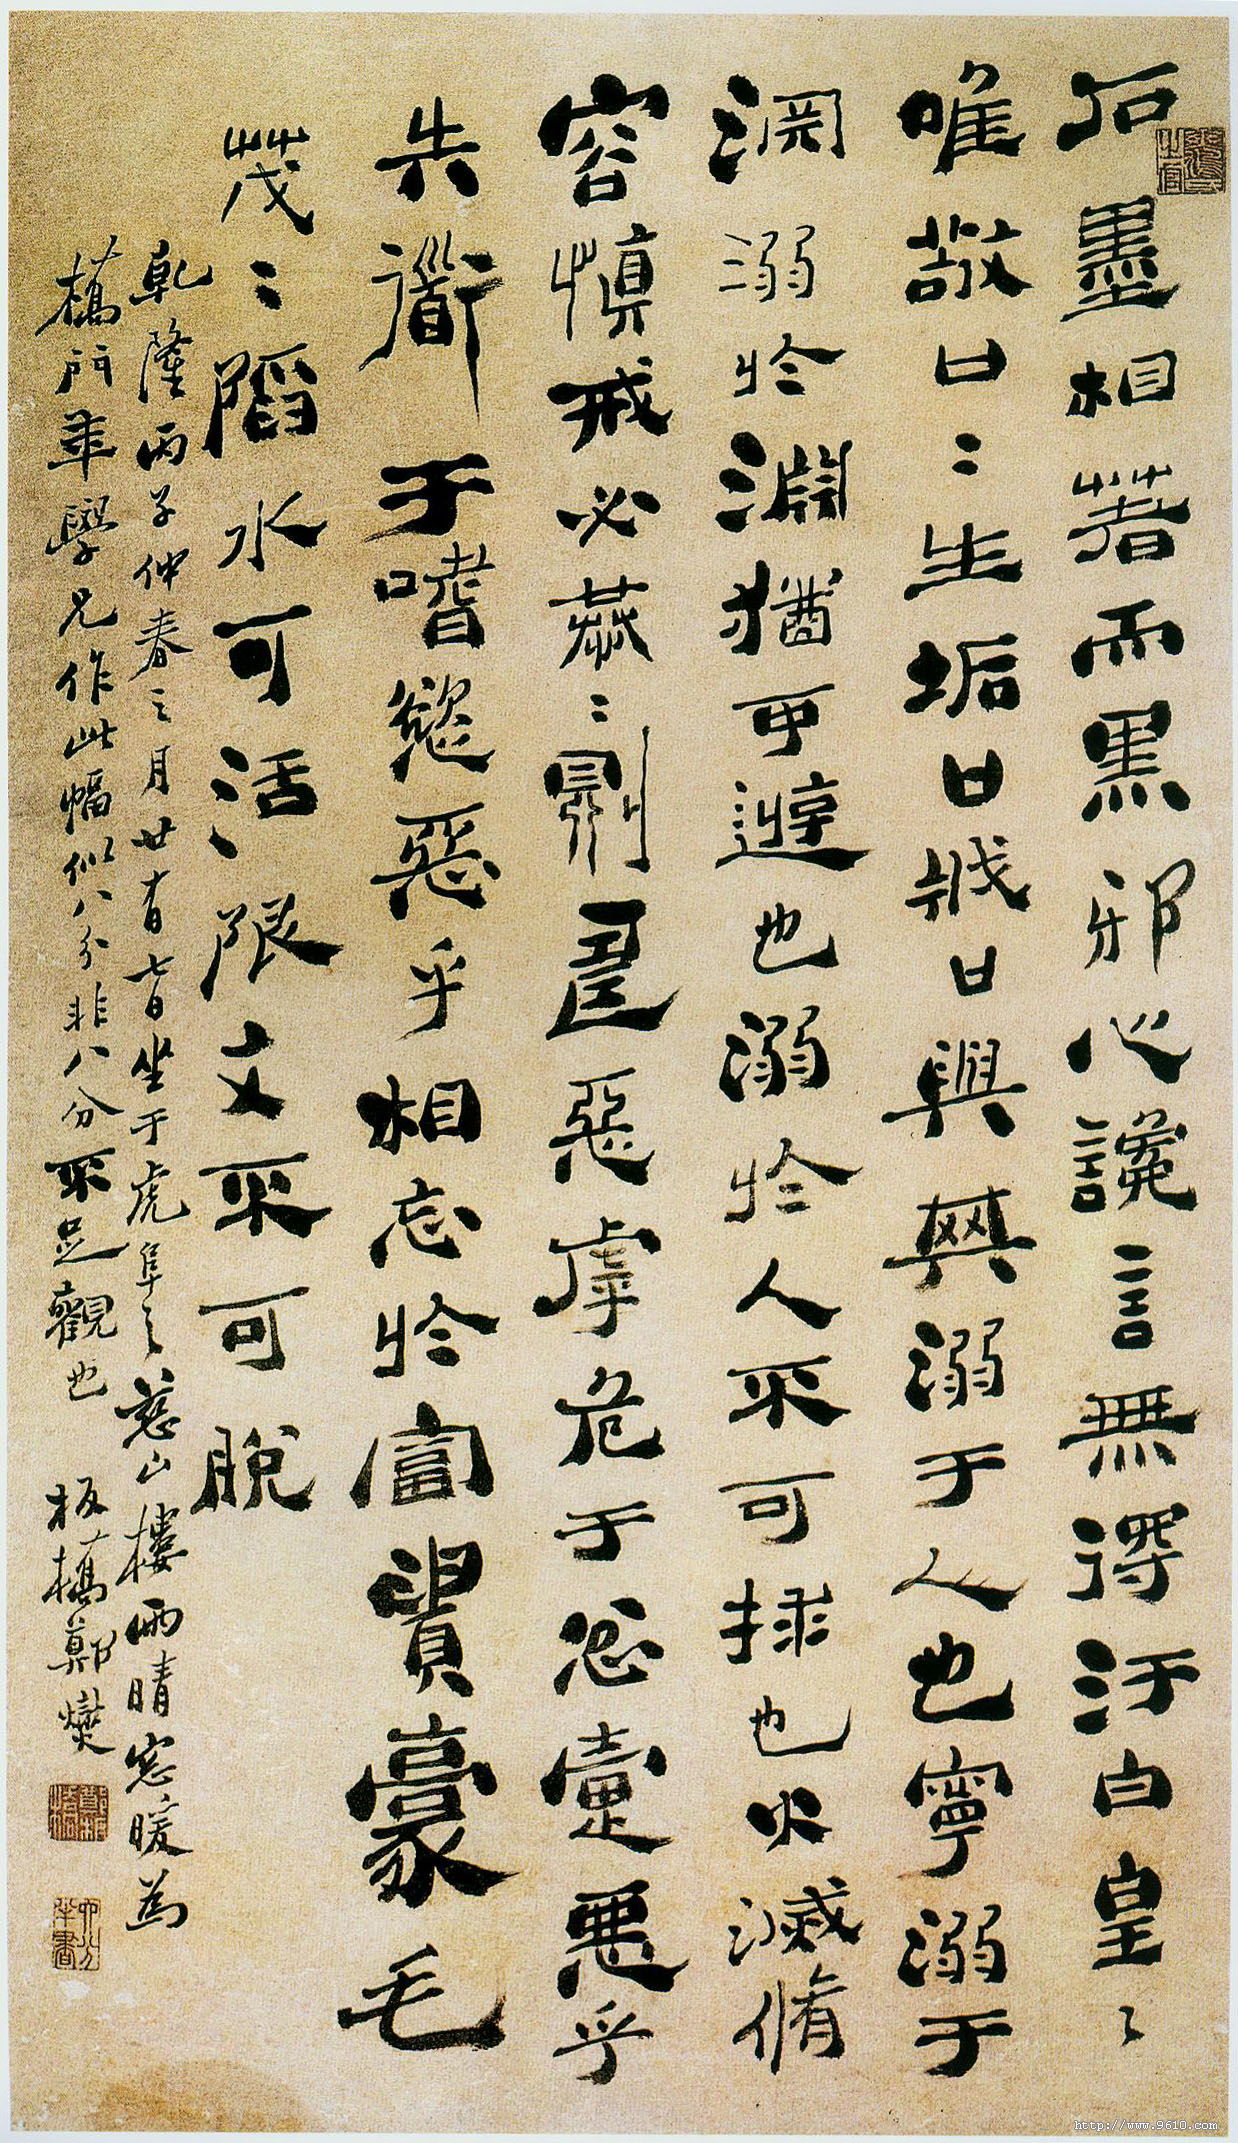 石墨相著而黑邪心讒言無得汙白皇〻
唯敬口〻生垢口戕口與其溺于人也寧溺于
淵溺於淵猶可遊也溺於人不可救也火滅脩
容慎戒必恭〻則壽惡虖危于忿疐惡乎
失衟于嗜慾惡乎相忘於富貴豪毛
茂〻陷水可活陷文不可脫
乾隆丙子仲春之月廿有七日坐于虎阜之慈山樓雨晴窓暖為
橋門年學兄作此幅似八分非八分不足觀也 板橋鄭燮
六分半書
http://www.9610.com